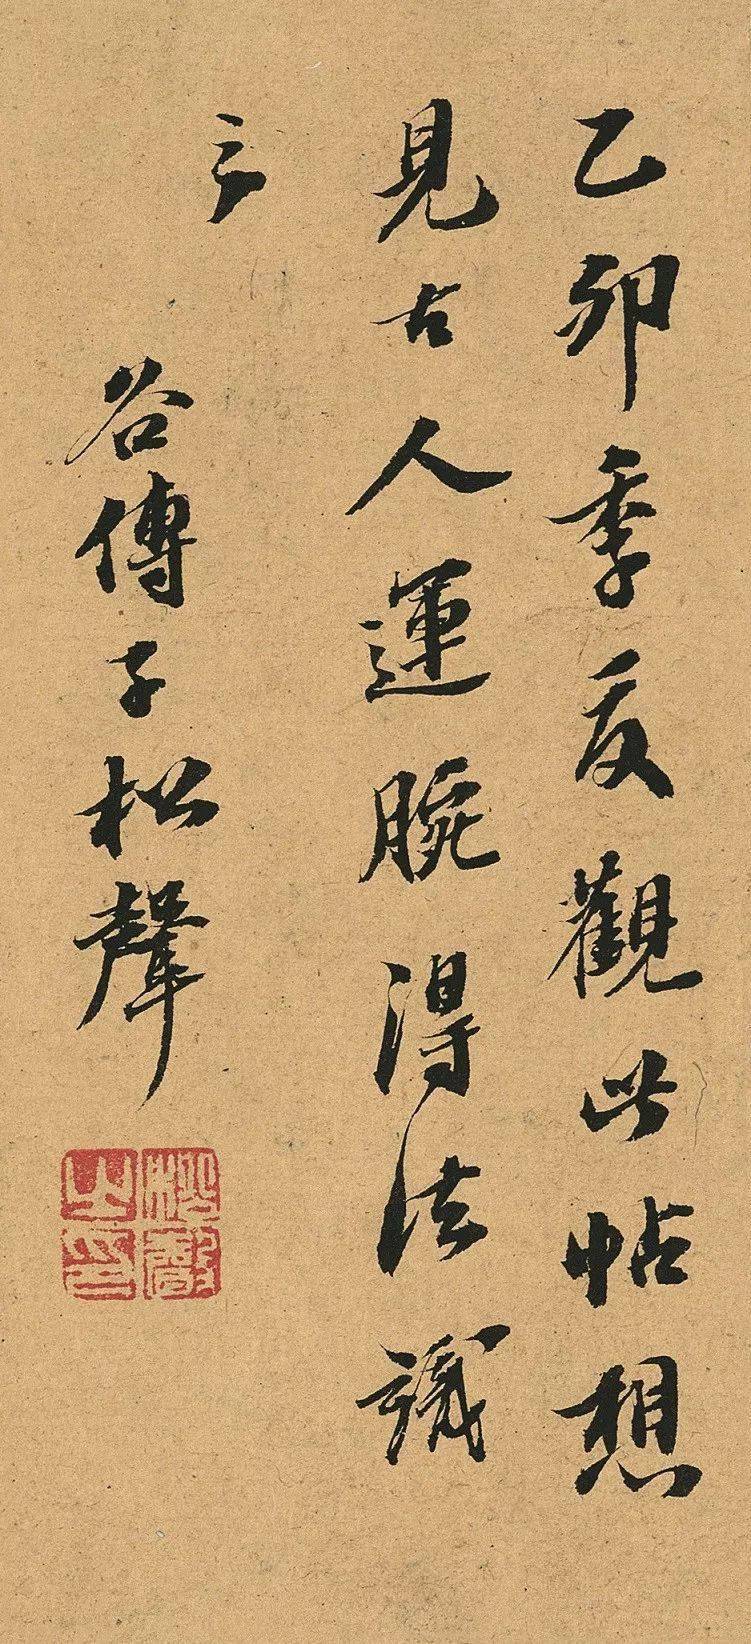 乙卯季夏觀此帖想
見古人運腕得法識
之
谷傳子松聲
松聲之印